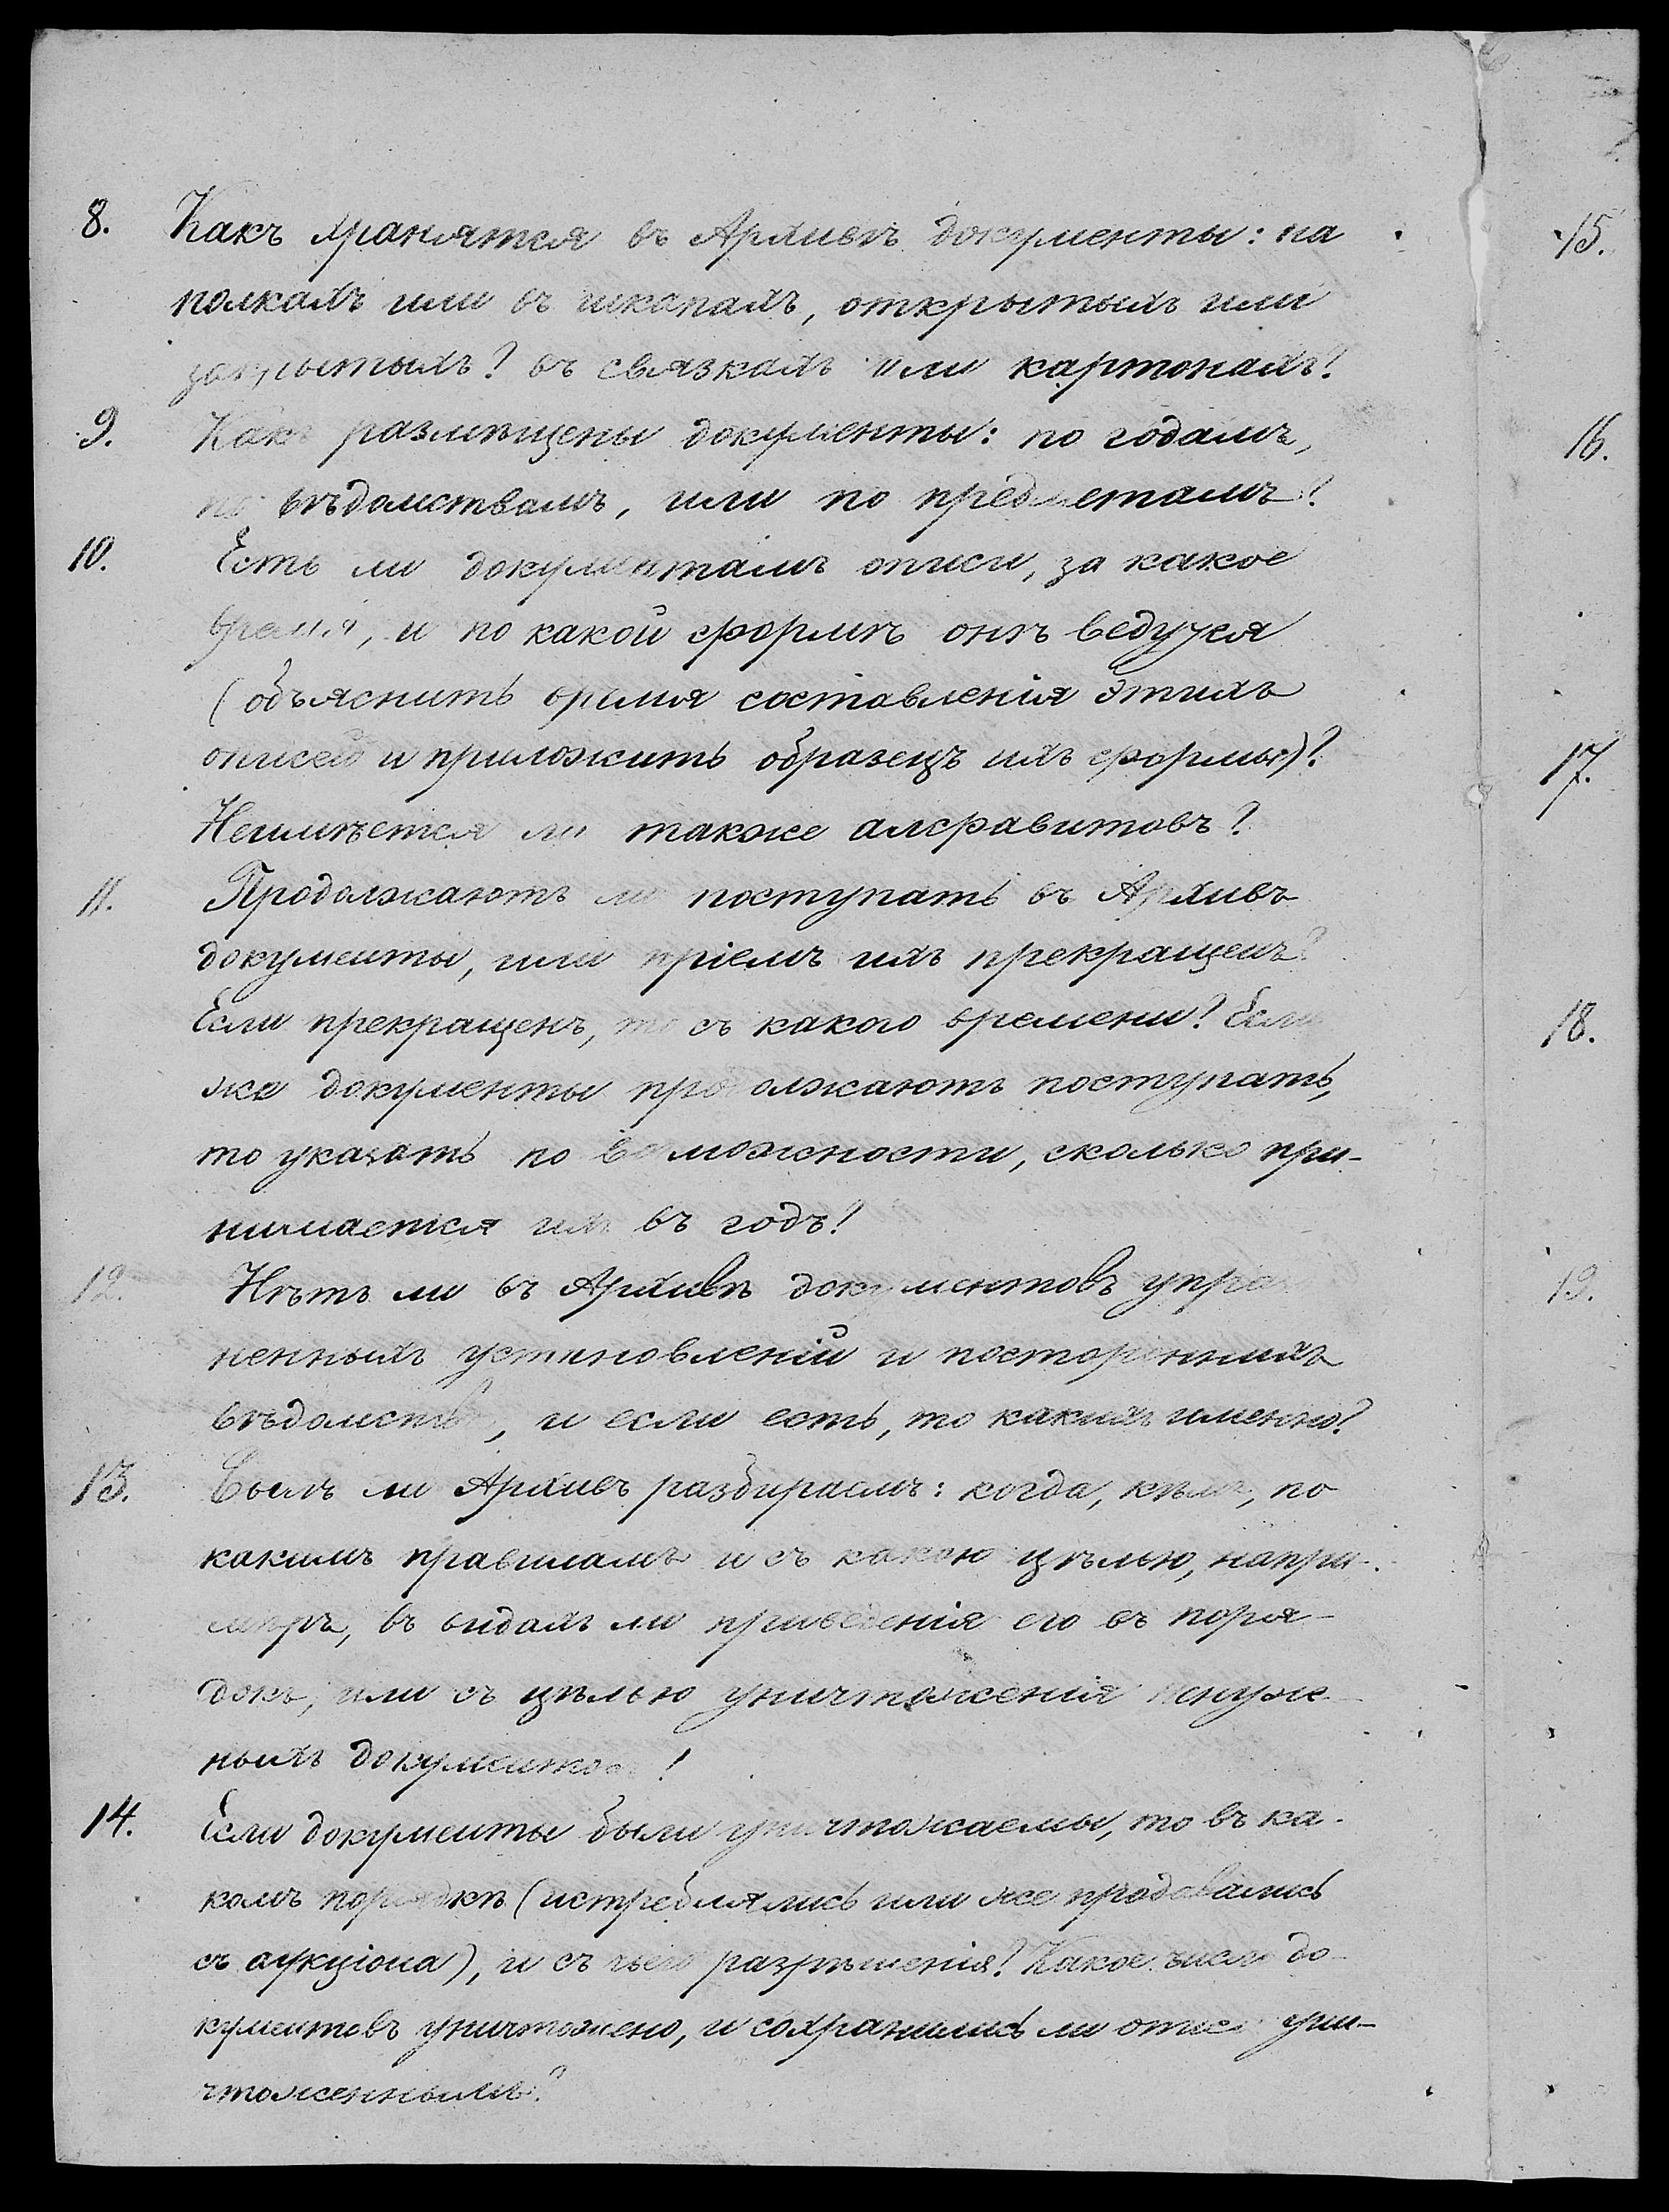 8. Какъ хранятся въ Архивѣ документы: на
полкахъ или въ шкапахъ, открытыхъ или
закрытыхъ? въ связкахъ или картонахъ?
9. Какъ размѣщены документы: по годамъ,
по вѣдомствамъ, или по предметамъ?
10. Есть ли документамъ описи, за какое
время, и по какой формѣ онѣ ведутся
(объяснить время составленія этихъ
описей и приложить образецъ ихъ формы)?
Неимѣется ли также алфавитовъ?
11. Продолжаютъ ли поступать въ Архивъ
документы, или пріемъ ихъ прекращенъ?
Если прекращенъ, то съ какого времени? Если
же документы продолжаютъ поступать,
то указать по возможности, сколько при-
нимается ихъ въ годъ?
12. Нѣтъ ли въ Архивѣ документовъ упра
ненныхъ установленій и постороннихъ
вѣдомствъ, и если есть, то какихъ именно?
13. Былъ ли Архивъ разбираемъ: когда, кѣмъ, по
какимъ правиламъ и съ какою цѣлью, напри-
мѣръ, въ видахъ ли приведенія его въ поря-
докъ, или съ цѣлью уничтоженія ненуж-
ныхъ документовъ?
14. Если документы были уничтожаемы, то въ ка-
комъ порядкѣ (истреблялись или же продавались
съ аукціона), и съ чьего разрѣшенія? Какое число до-
кументовъ уничтожено, и сохранились ли описи уни-
чтоженнымъ?
15.
16.
17.
18.
19.